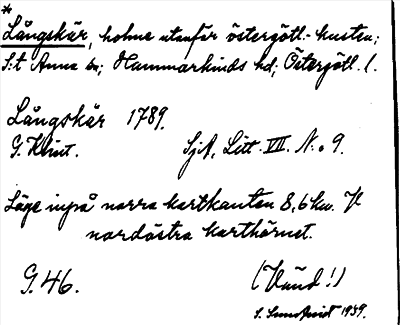 *
Långskär, holme utanför östergötl.-kusten;
S:t Anna sn; Hammarkinds hd; Östergötl. l.
Långskär 1789.
G. Klint. SjA, Litt. VII. N:o 9.
Läge inpå norra kartkanten 8,6 km. V
nordöstra karthörnet.
G. 46. (Vänd!)
S. Sundqvist 1939.